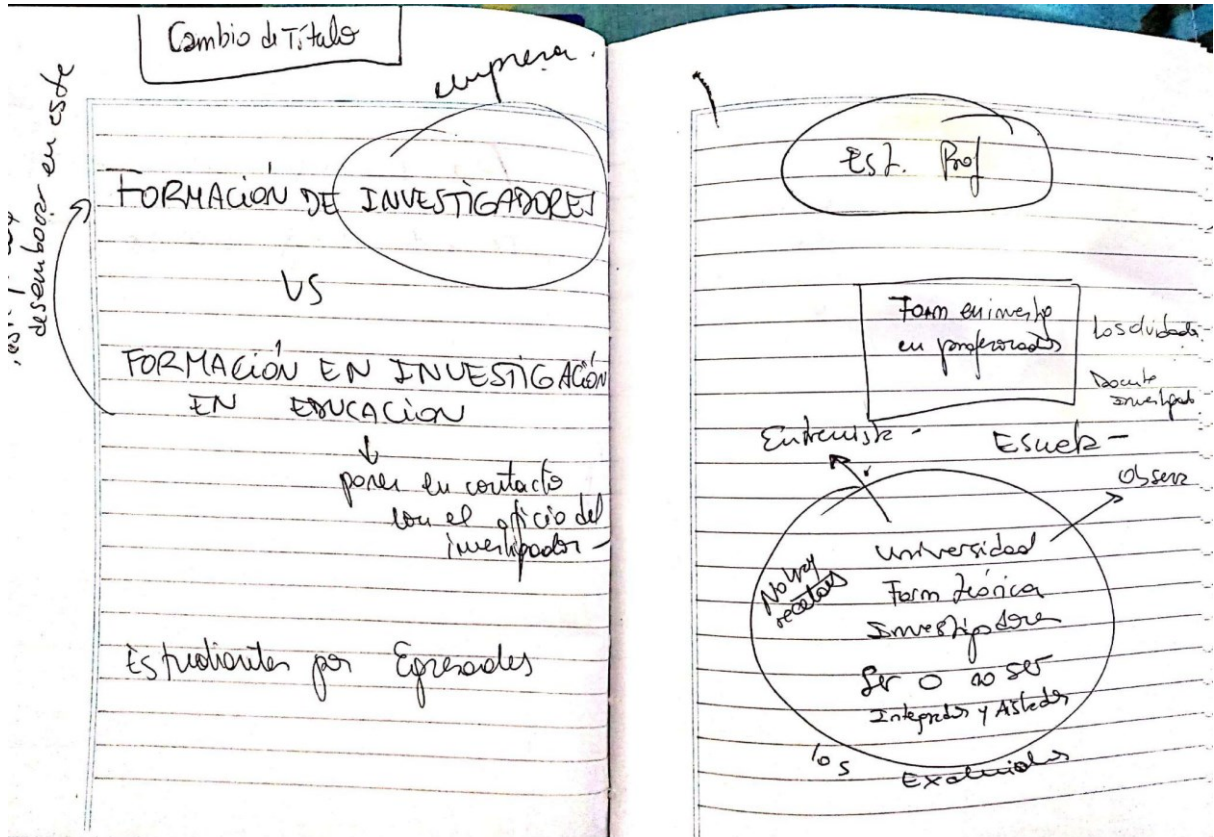 Cambio de Título
empresa.
desembocar en este
FORMACIÓN DE INVESTIGADORES
VS
FORMACIÓN EN INVESTIGACIÓN
EN EDUCACIÓN
poner en contacto
con el oficio del
investigador -
Estudiantes por Egresados
Est. Prof
Form en investig
en profesorados
Los olvidados
Docente
Investigad
Entrevista -
Escuela -
Observ
Universidad
No hay
recetas
Form teórica
Investigadores
Ser o no ser
Integrados y Aislados
los
Excluidos